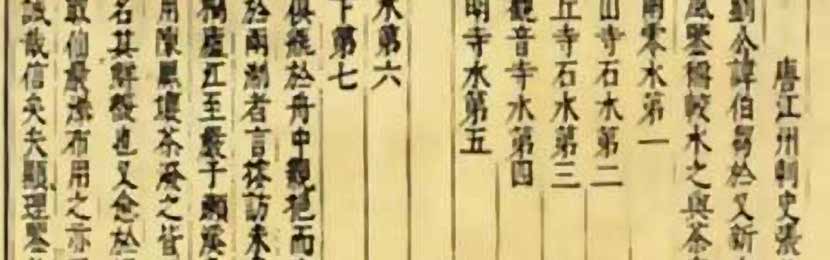 唐江州刺史張
劉公諱伯芻於又新
風鑒稱較水之與茶
南零水第一
山寺石水第二
丘寺石水第三
觀音寺水第四
明寺水第五
水第六
下第七
俱瓶於舟中親挹而
於兩者言訪未
桐廬江至嚴子瀨溪
用陳黑壞茶潑之皆
名其鮮馥也又愈於
取仙巖瀑布用之亦
誠哉信矣夫顯理鑒